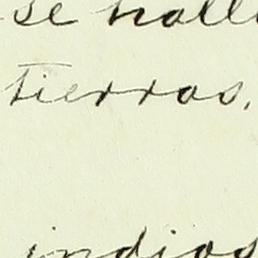 se hall
tierras.
indios